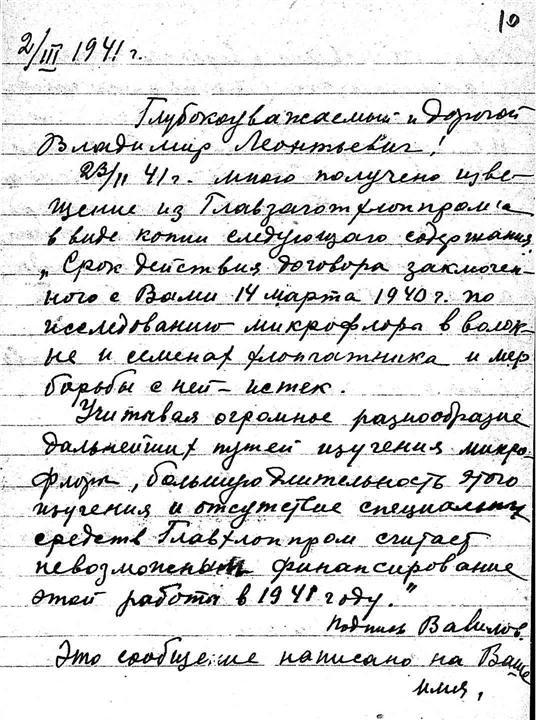 10
2/III 1941 г.
Глубокоуважаемый и дорогой
Владимир Леонтьевич!
23/II 41 г. мною получено изве-
щение из Главзаготхлоппром'а
в виде копии следующаго содержания
„Срок действия договора заключен-
ного с Вами 14 марта 1940 г. по
исследованию микрофлоры в волок-
не и семенах хлопчатника и мер
борьбы с ней – истек.
Учитывая огромное разнообразие
дальнейших путей изучения микро-
флоры, большую длительность этого
изучения и отсутствие специальных
средств Главхлоппром считает
невозможным финансирование
этой работы в 1941 году."
подпись Вавилов.
Это сообщение написано на Ваше
имя,